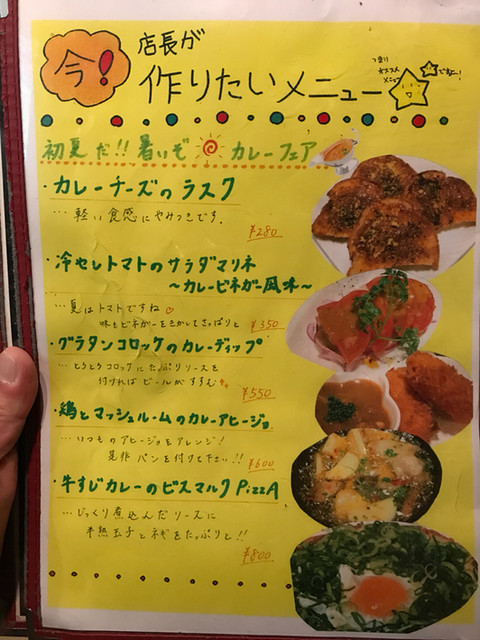 今！
店長が
作りたいメニュー
つまり
オススメ
メニュー
ですよー！
初夏だ!! 暑いぞ カレーフェア
・カレーチーズのラスク
…軽い食感にやみつきです。
¥280
・冷やしトマトのサラダマリネ
～カレービネガー風味～
…夏はトマトですね♡
味もビネガーをきかしてさっぱりと
¥350
・グラタンコロッケのカレーディップ
…とろとろコロッケにたっぷりソースを
付ければビールがすすむ
¥550
・鶏とマッシュルームのカレーアヒージョ
…いつものアヒージョをアレンジ！
是非パンを付けて下さい!!
¥600
・牛すじカレーのビスマルクPizzA
…じっくり煮込んだソースに
半熟玉子とネギをたっぷりと!!
¥800